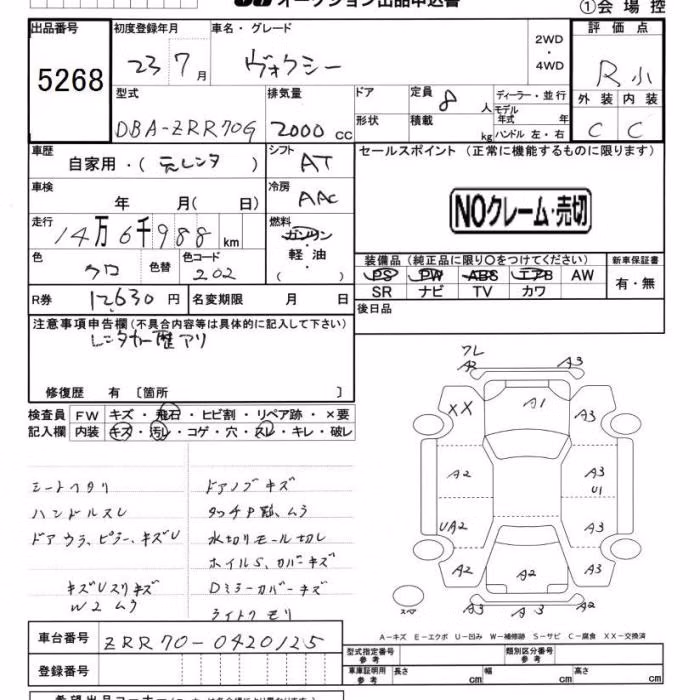 オークション出品申込書 ①会場控
出品番号 5268
初度登録年月 23 7月
車名・グレード ヴォクシー
2WD・4WD
評価点 R小
外装 C 内装 C
型式 DBA-ZRR70G
排気量 2000 cc
ドア 形状
定員 8 人
積載 kg
ディーラー・並行
モデル年式 年
ハンドル 左・右
車歴 自家用・(元レンタ)
シフト AT
セールスポイント (正常に機能するものに限ります)
NOクレーム・売切
車検 年 月( 日)
冷房 AAC
走行 14万6千988km
燃料 ガソリン・軽油・( )
色 クロ 色替 色コード 202
装備品(純正品に限り○をつけてください) 新車保証書
PS PW ABS エアB AW 有・無
SR ナビ TV カワ
R券 12,630円 名変期限 月 日
後日品
注意事項申告欄(不具合内容等は具体的に記入して下さい)
レンタカー歴アリ
修復歴 有 〔箇所 〕
検査員 FW キズ・飛石・ヒビ割・リペア跡・×要
記入欄 内装 キズ・汚レ・コゲ・穴・スレ・キレ・破レ
シートヘタリ ドアノブキズ
ハンドルスレ タッチP跡、ムラ
ドアウラ、ピラー、キズU 水切りモール切レ
ホイルS、カバーキズ
キズUスリキズ Dミラーカバーキズ
W2ムラ ライトクモリ
ワレ
A2 A3
XX A1 A3
A2 A3
U1
UA2 A3
A2 A2 A3
スペア A3 A3
A-キズ E-エクボ U-凹み W-補修跡 S-サビ C-腐食 XX-交換済
車台番号 ZRR70-0420125
型式指定番号 参考 類別区分番号 参考
登録番号
車庫証明用 参考 長さ cm 幅 cm 高さ cm
希望出品コーナー